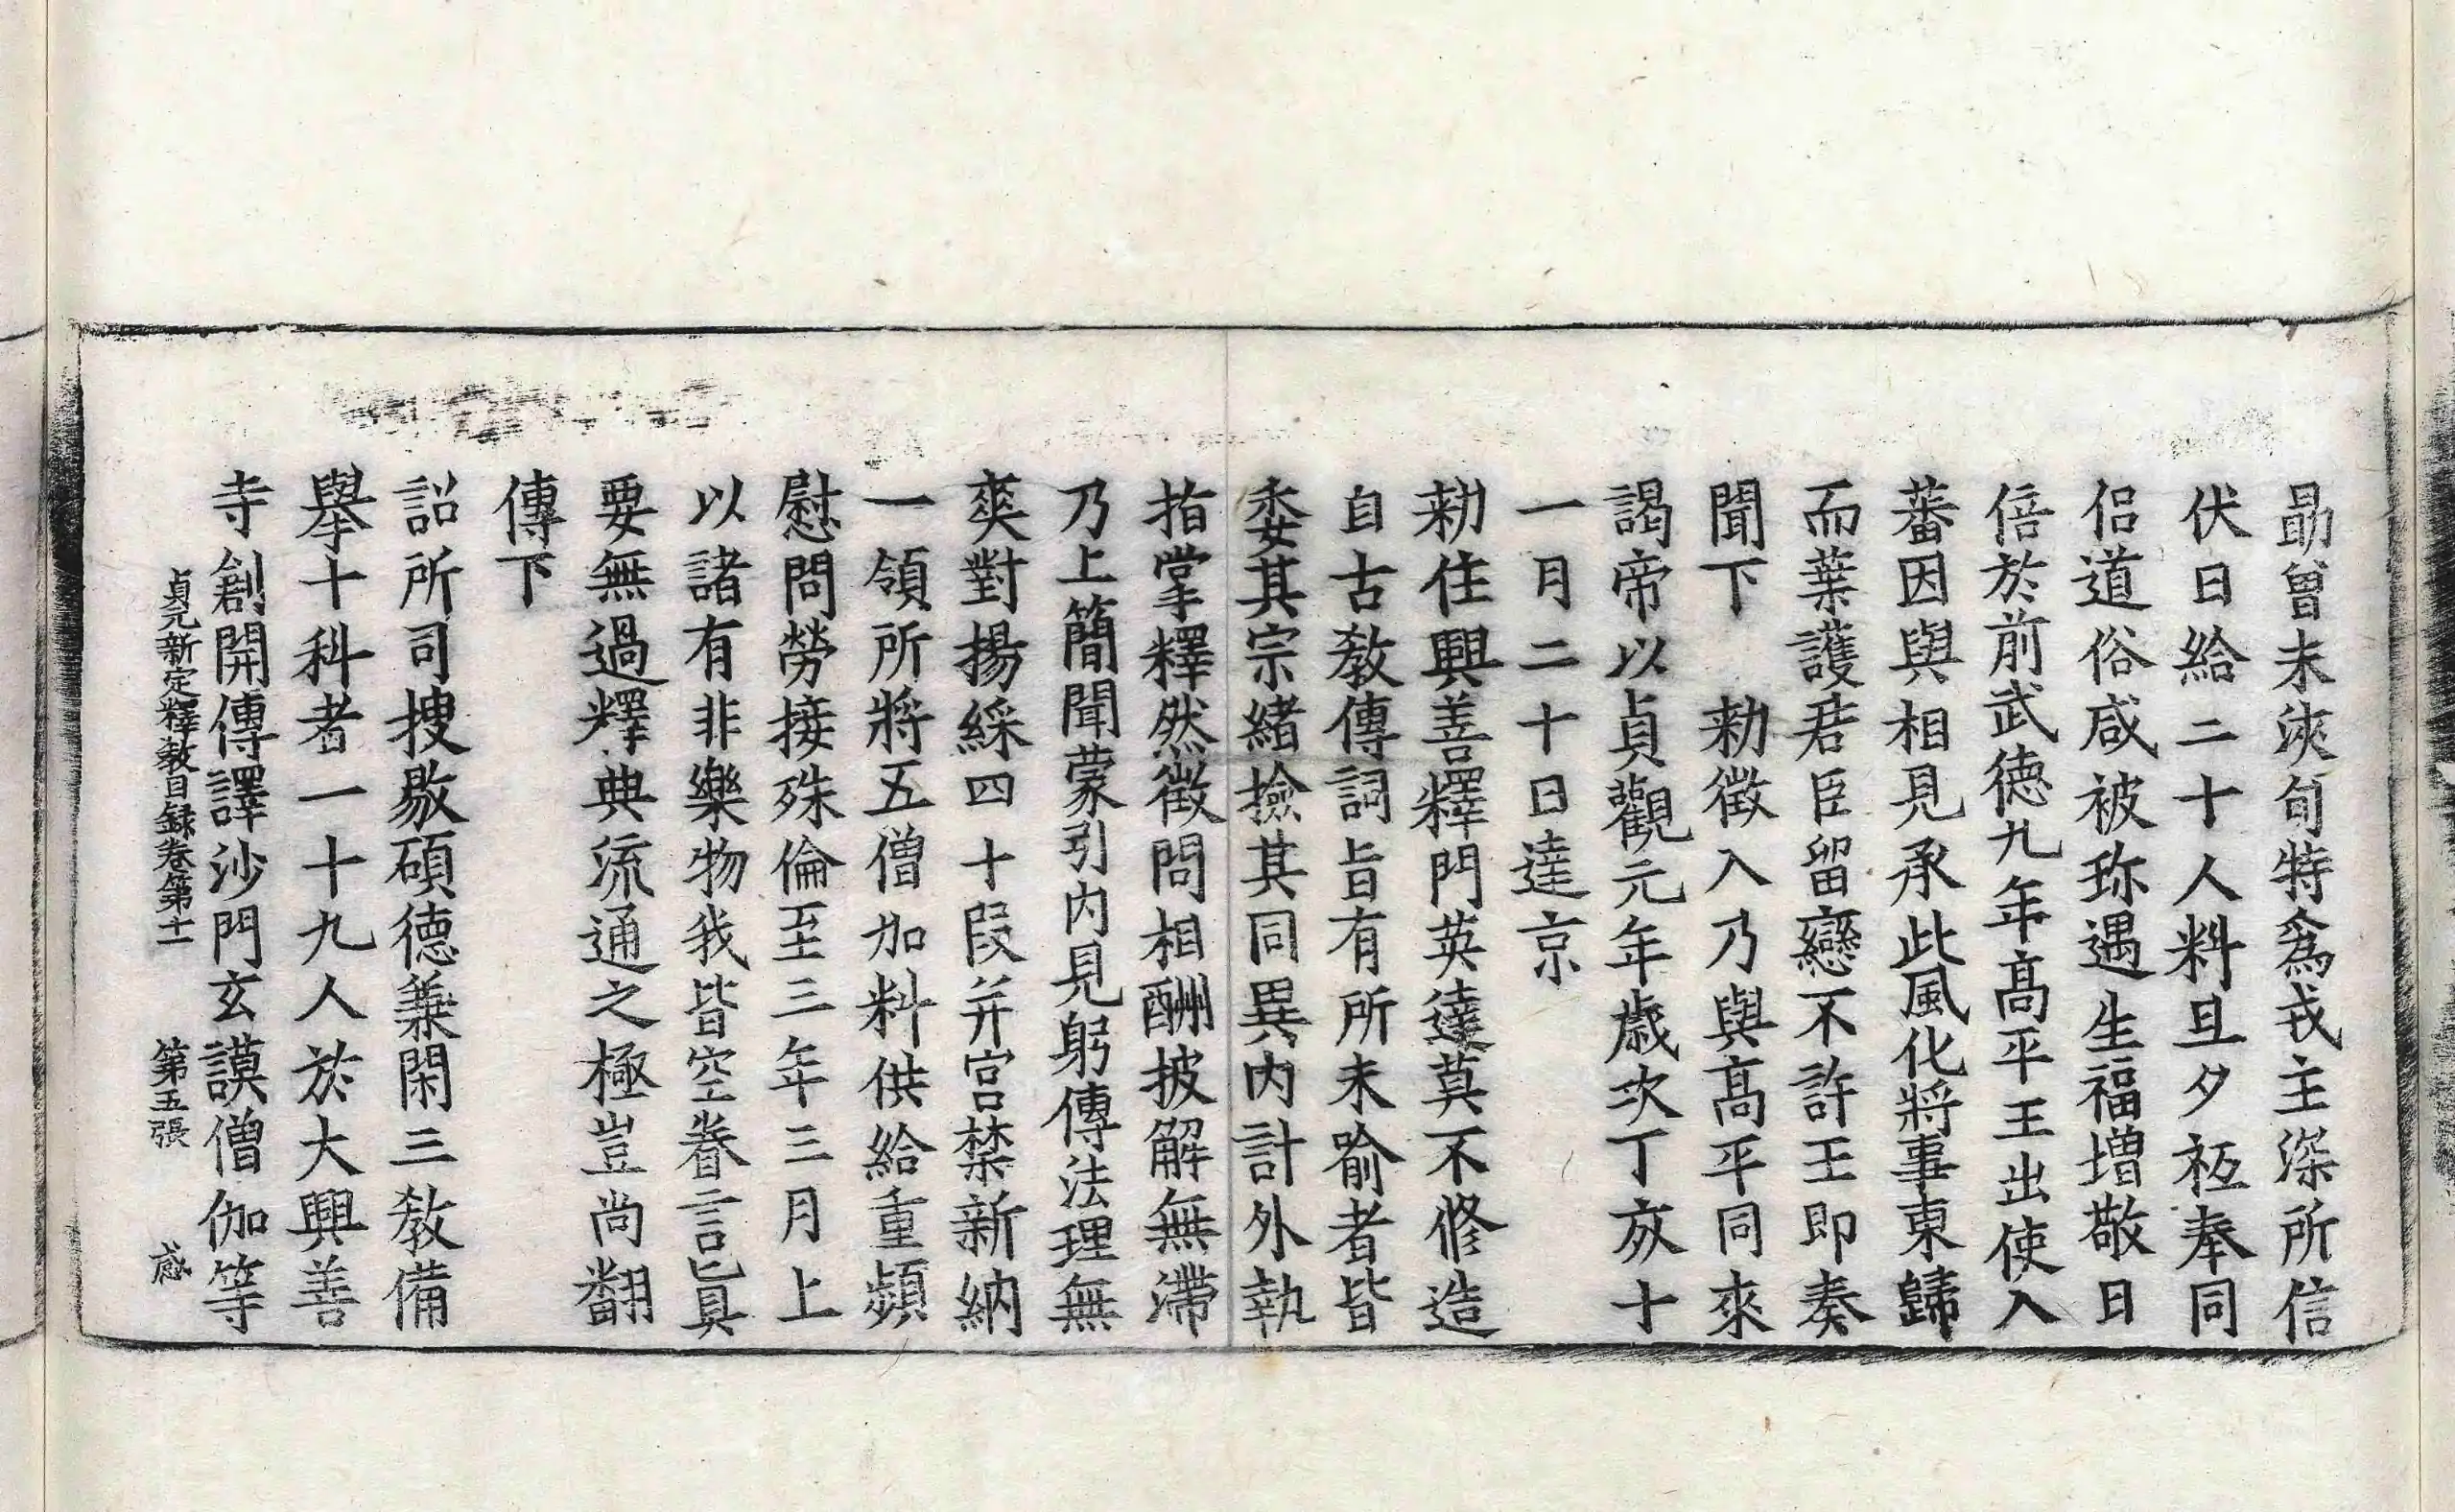 勗曾未浹旬特爲戎主深所信
伏日給二十人料旦夕祗奉同
侣道俗咸被珎遇生福增敬日
倍於前武德九年高平王出使入
蕃因與相見承此風化將事東歸
而葉護君臣留戀不許王即奏
聞下　勑徵入乃與高平同來
謁帝以貞觀元年歲次丁亥十
一月二十日達京
勑住興善釋門英達莫不修造
自古教傳詞旨有所未喻者皆
委其宗緒撿其同異內計外執
指掌釋然徵問相酬披解無滯
乃上簡聞蒙引內見躬傳法理無
爽對揚綵四十段并宮禁新納
一領所將五僧加料供給重頻
慰問勞接殊倫至三年三月上
以諸有非樂物我皆空眷言眞
要無過釋典流通之極豈尚翻
傳下
詔所司搜敭碩德兼閑三教備
擧十科者一十九人於大興善
寺創開傳譯沙門玄謨僧伽等
貞元新定釋教目録卷第十一　第五張　感